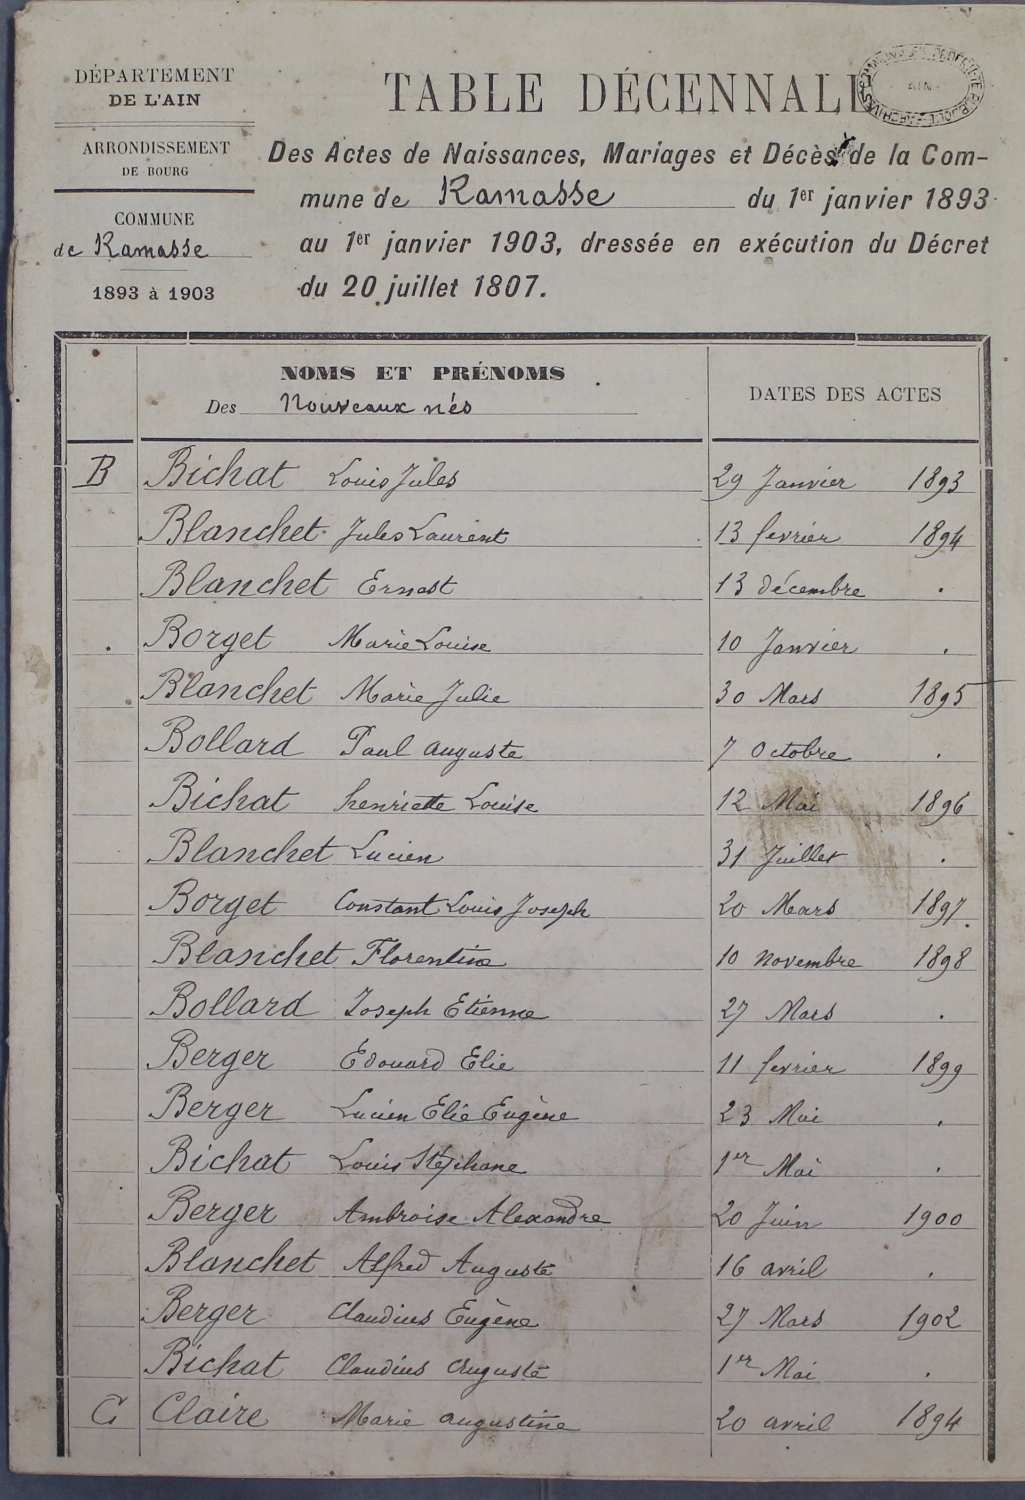 DÉPARTEMENT
DE L'AIN
ARRONDISSEMENT
DE BOURG
COMMUNE
de Ramasse
1893 à 1903
TABLE DÉCENNALE
AIN
Des Actes de Naissances, Mariages et Décès de la Com-
mune de Ramasse du 1er janvier 1893
au 1er janvier 1903, dressée en exécution du Décret
du 20 juillet 1807.
NOMS ET PRÉNOMS
Des Nouveaux nés
DATES DES ACTES
B Bichat Louis Jules 29 Janvier 1893
Blanchet Jules Laurent 13 fevrier 1894
Blanchet Ernest 13 décembre .
Borget Marie Louise 10 Janvier .
Blanchet Marie Julie 30 Mars 1895
Bollard Paul auguste 7 Octobre .
Bichat henriette Louise 12 Mai 1896
Blanchet Lucien 31 Juillet .
Borget Constant Louis Joseph 20 Mars 1897.
Blanchet Florentine 10 Novembre 1898
Bollard Joseph Etienne 27 Mars .
Berger Édouard Elie 11 fevrier 1899
Berger Lucien Elie Eugène 23 Mai .
Bichat Louis Stéphane 1er Mai .
Berger Ambroise Alexandre 20 Juin 1900
Blanchet Alfred Auguste 16 avril .
Berger Claudius Eugène 27 Mars 1902
Bichat Claudius Auguste 1er Mai .
C Claire Marie augustine 20 avril 1894